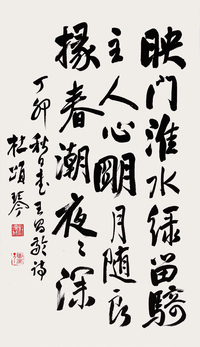 映门淮水绿留骑
主人心明月随良
掾春潮夜々深
丁卯秋日书王昌龄诗
杜颂琴